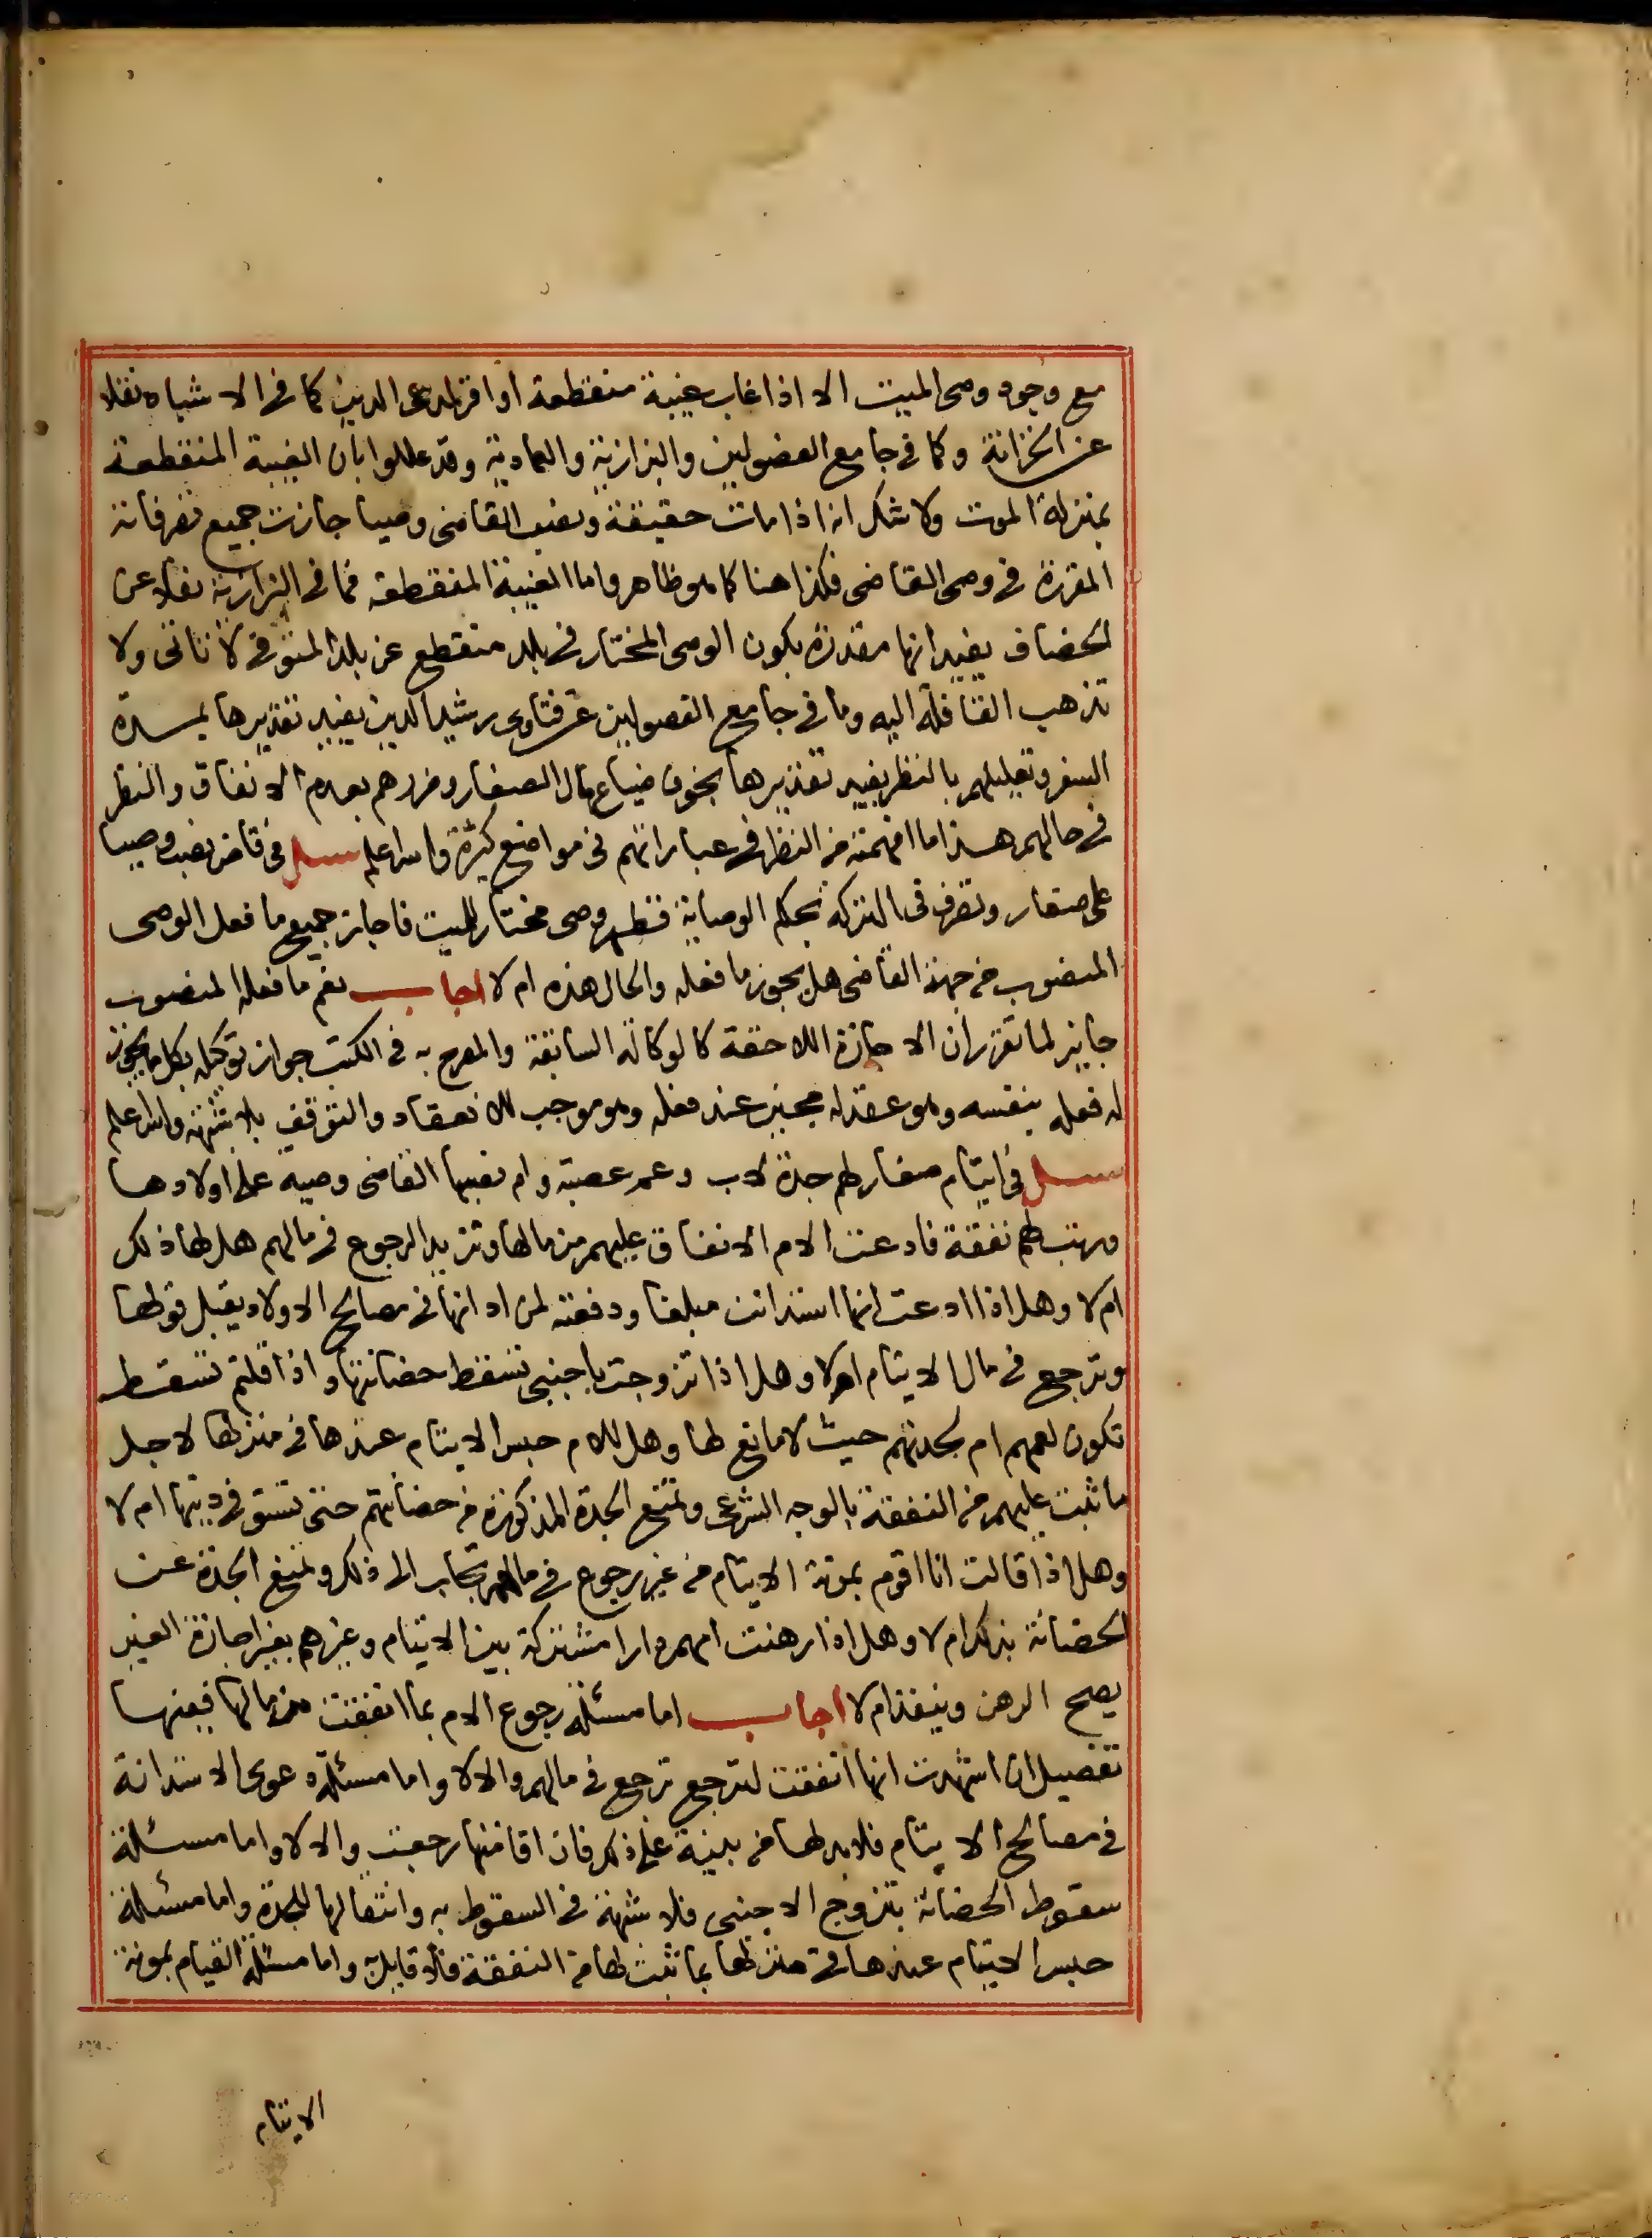 مع وجود وصى الميت الا اذا غاب غيبة منقطعة او اقر لمدعى الدين كما فى الاشباه نقلا
عن الخزانة وكما فى جامع الفصولين والبزازية والعمادية وقد عللوا بان الغيبة المنقطعة
بمنزلة الموت ولا شك انه اذا مات حقيقة ونصب القاضى وصيا جازت جميع تصرفاته
المقررة فى وصى القاضى فكذا هنا كما هو ظاهر واما الغيبة المنقطعة فما فى البزازية نقلا عن
الخصاف يفيد انها مقدرة بكون الوصى المختار فى بلد منقطع عن بلد المتوفى لا تاتى ولا
تذهب القافلة اليه وما فى جامع الفصولين عن فتاوى رشيد الدين يفيد تقديرها بمدة
السفر وتعليلهم بالنظر يفيد تقديرها بخوف ضياع مال الصغار وضررهم بعدم الانفاق والنظر
فى حالهم هذا ما افهمته من النظر فى عباراتهم فى مواضع كثيرة والله اعلم سئل فى قاض نصب وصيا
على صغار وتصرف فى التركه بحكم الوصاية فظهر وصى مختار للميت فاجاز جميع ما فعل الوصى
المنصوب من جهة القاضى هل يجوز ما فعله والحال هذه ام لا اجاب نعم ما فعله المنصوب
جايز لما تقرر ان الاجازة اللاحقة كالوكالة السابقة والمصرح به فى الكتب جواز توكيله بكل ما يجوز
له فعله بنفسه وهو عقد له مجيز عند فعله وهو موجب للانعقاد والتوقف بلا شبهة والله اعلم
سئل فى ايتام صغار لهم جدة لاب وعم عصبة وام نصبها القاضى وصية على اولادها
ورتب لهم نفقة فادعت الام الانفاق عليهم من مالها وتريد الرجوع فى مالهم هل لها ذلك
ام لا وهل اذا ادعت انها استدانت مبلغا ودفعته لمن ادانها فى مصالح الاولاد يقبل قولها
وترجع فى مال الايتام ام لا وهل اذا تزوجت باجنبى تسقط حضانتها واذا قلتم تسقط
تكون لعمهم ام لجدتهم حيث لا مانع لها وهل للام حبس الايتام عندها فى منزلها لاجل
ما ثبت عليهم من النفقة بالوجه الشرعى وتمنع الجدة المذكورة من حضانتهم حتى تستوفى دينها ام لا
وهل اذا قالت انا اقوم بمونة الايتام من غير رجوع فى مالهم تجاب الى ذلك وتمنع الجدة عن
الحضانة بذلك ام لا وهل اذا رهنت امهم دارا مشتركة بين الايتام وغيرهم بغير اجازة الغير
يصح الرهن وينفذ ام لا اجاب اما مسئلة رجوع الام بما انفقت من مالها ففيها
تفصيل ان اشهدت انها انفقت لترجع ترجع فى مالهم والا لا واما مسئلة دعوى الاستدانة
فى مصالح الايتام فلا بد لها من بينة على ذلك فان اقامتها رجعت والا لا واما مسئلة
سقوط الحضانة بتزوج الاجنبى فلا شبهة فى السقوط به وانتقالها للجدة واما مسئلة
حبس الايتام عندها فى منزلها بما ثبت لها من النفقة فلا قايل به واما مسئلة القيام بمونة
الايتام